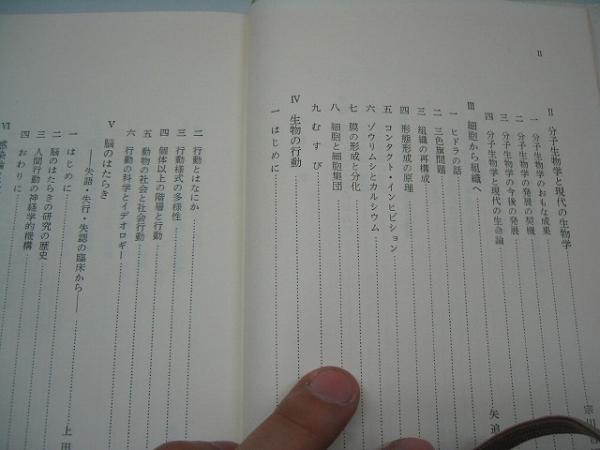 II
II 分子生物学と現代の生物学
一 分子生物学のおもな成果
二 分子生物学の発展の契機
三 分子生物学の今後の発展
四 分子生物学と現代の生命論
III 細胞から組織へ
一 ヒドラの話
二 三色旗問題
三 組織の再構成
四 形態形成の原理
五 コンタクト・インヒビション
六 ゾウリムシとカルシウム
七 膜の形成と分化
八 細胞と細胞集団
九 むすび
IV 生物の行動
一 はじめに
二 行動とはなにか
三 行動様式の多様性
四 個体以上の階層と行動
五 動物の社会と社会行動
六 行動の科学とイデオロギー
V 脳のはたらき
——失語・失行・失認の臨床から——
一 はじめに
二 脳のはたらきの研究の歴史
三 人間行動の神経学的機構
四 おわりに
VI 感染
宗川
矢追
上田